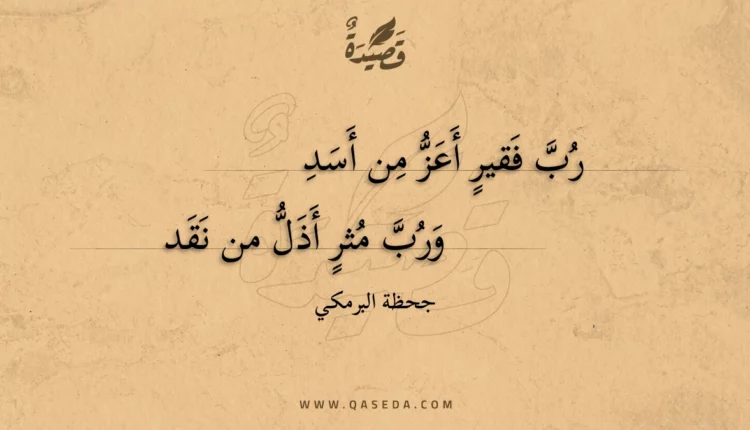 قَصِيدَةٌ
رُبَّ فَقيرٍ أَعَزُّ مِن أَسَدِ
وَرُبَّ مُثرٍ أَذَلُّ من نَقَد
جحظة البرمكي
WWW.QASEDA.COM